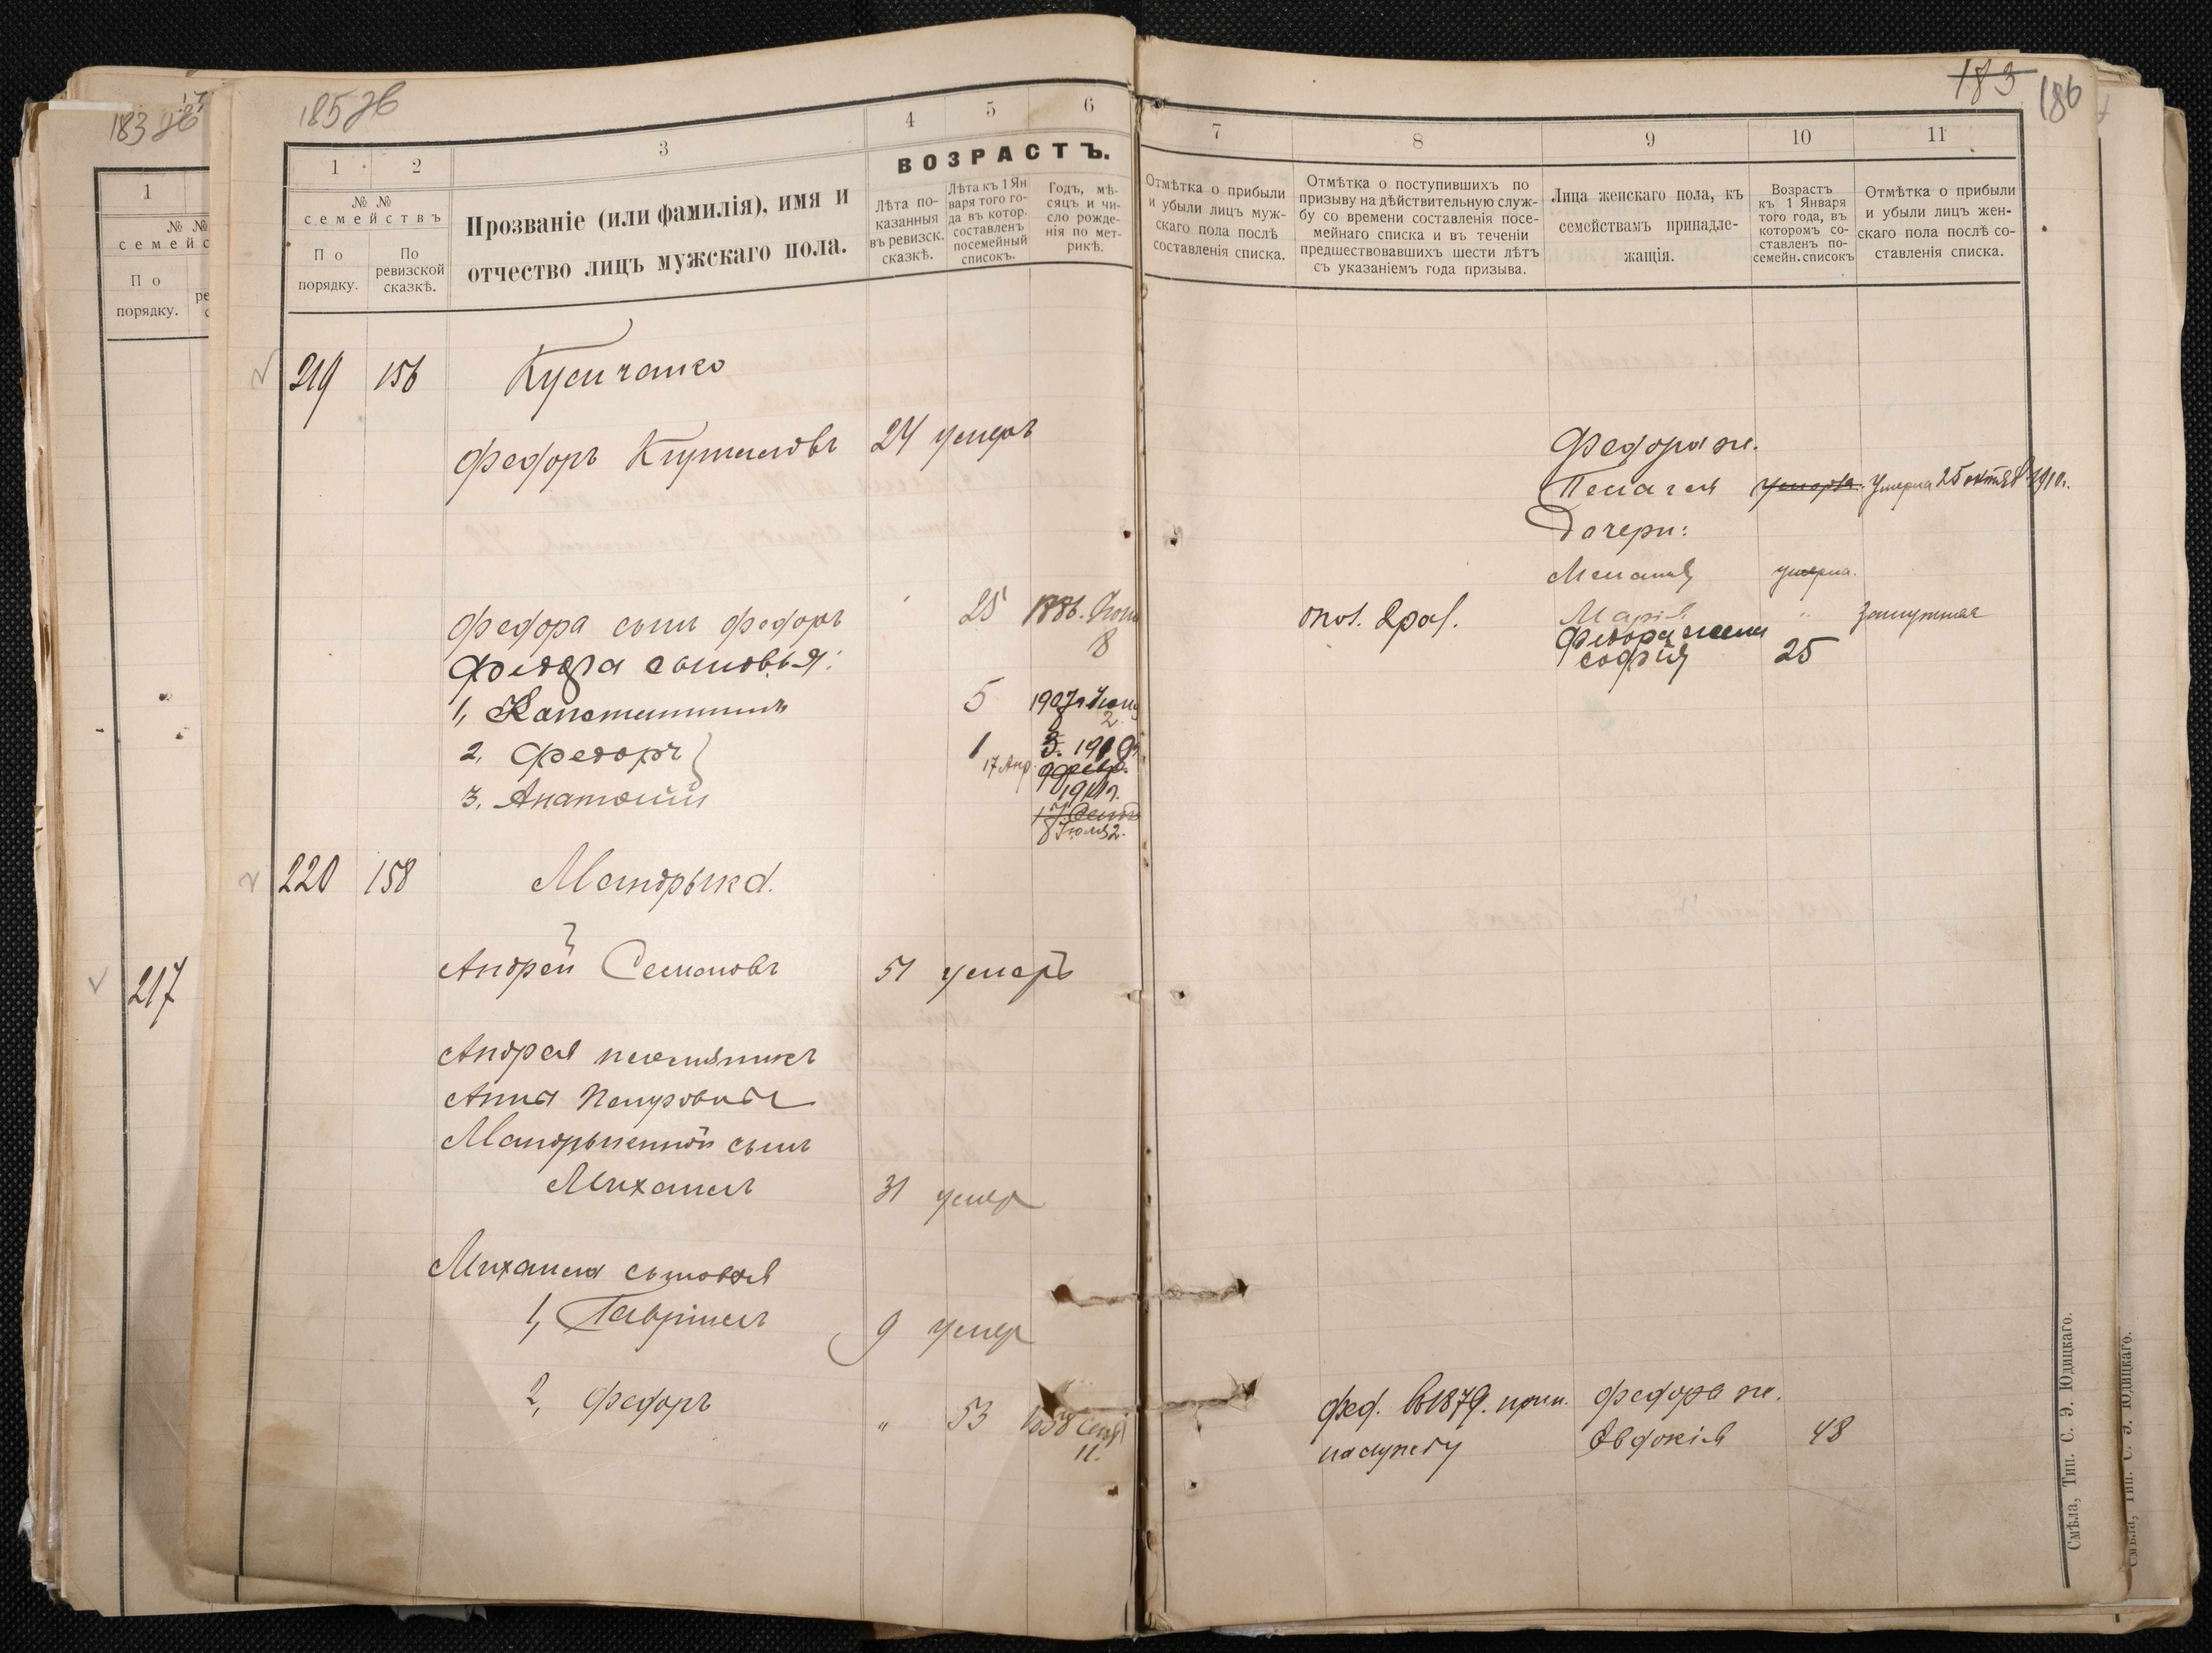 183 об
1
№ №
семейс
По
порядку.
217
185 об
1
2
3
4
5
6
№ №
семействъ
По
порядку.
По
ревизской
сказкѣ.
Прозваніе (или фамилія), имя и
отчество лицъ мужскаго пола.
ВОЗРАСТЪ.
Лѣта по-
казанныя
въ ревизск.
сказкѣ.
Лѣта къ 1 Ян
варя того го-
да въ котор.
составленъ
посемейный
списокъ.
Годъ, мѣ-
сяцъ и чи-
сло рожде-
нія по мет-
рикѣ.
219 156
Федоръ 24 умеръ
Федора сынъ Федоръ 25 1886.
8
Федора сыновья:
1, Констинтинъ 5 1907г
2, Федоръ 1
17 Апр.
3, Анатолий
1911г.
220 158 Мандрыка.
Андрей Семеновъ 51 умеръ
Андрея племѣникъ
Анны Петровны
Мандрыкенной сынъ
Михаилъ 31 умер
Михаила сыновья
1, Гавріилъ 9 умер
2, Федоръ „ 53 1858 Сент
11.
183 186
7
8
9
10
11
Отмѣтка о прибыли
и убыли лицъ муж-
скаго пола послѣ
составленія списка.
Отмѣтка о поступившихъ по
призыву на дѣйствительную служ-
бу со времени составленія посе-
мейнаго списка и въ теченіи
предшествовавшихъ шести лѣтъ
съ указаніемъ года призыва.
Лица женскаго пола, къ
семействамъ принадле-
жащія.
Возрастъ
къ 1 Января
того года, въ
которомъ со-
ставленъ по-
семейн. списокъ
Отмѣтка о прибыли
и убыли лицъ жен-
скаго пола послѣ со-
ставленія списка.
Федора ж.
Пелагея умерла. Умерла 25 октяб. 1910г.
Дочери:
Меланія умерла.
Марія „ замужняя
Федора жена
софія 25
Фед. въ 1879. прин. Федора ж.
на службу Евдокія 48
Смѣла, Тип. С. Э. Юдицкаго.
Смѣла, Тип. С. Э. Юдицкаго.